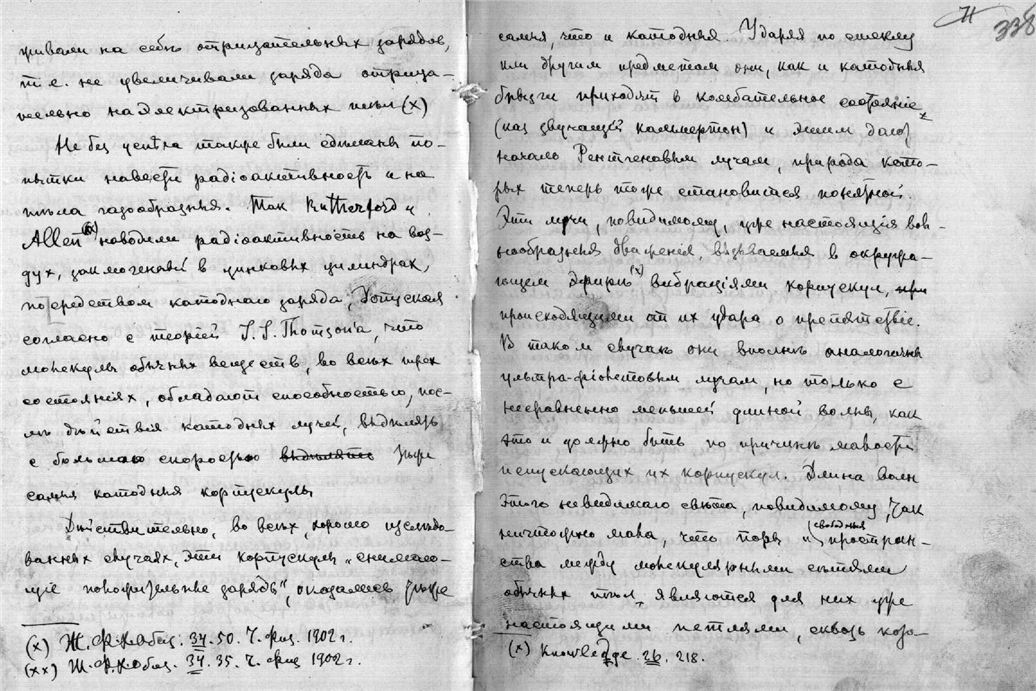 живали на себѣ отрицательныхъ зарядов,
т. е. не увеличивали заряда отрица-
тельно наэлектризованных тѣл (х)
Не без успѣха также были сдѣланы по-
пытки навести радіоактивность и на
тѣла газообразныя. Так Rutherford и
Allen (хх) наводили радіоактивность на воз-
дух, заключенный в цинковых цилиндрах,
посредством катоднаго заряда. Допуская
согласно с теоріей J. J. Thomson'a, что
молекулы обычных веществ, во всѣх трех
состояніях, обладают способностью, пос-
лѣ дѣйствія катодных лучей, выдѣлять
с большою скоростью выдѣлять тѣже
самыя катодныя корпускулы
Дѣйствительно, во всѣх, хорошо изслѣдо-
ванных случаях, эти корпускулы „снимаю-
щіе положительные заряды“, оказались тѣже
(х) Ж. Ф. Х. Общ. 34. 50. Ч. физ. 1902 г.
(хх) Ж. Ф. Х. Общ. 34. 35. Ч. физ 1902 г.
338
самыя, что и катодныя. Ударяя по стеклу
или другим предметам они, как и катодныя
брызги приходят в колебательное состояніе
(как звучащій каммертон) и этим дают
начало Рентгеновым лучам, природа кото-
рых теперь тоже становится понятной.
Эти лучи, повидимому, уже настоящія вол-
нообразныя движенія, вызываемыя в окружа-
ющем эфирѣ (х) вибраціями корпускул, при
происходящими от их удара о препятствіе.
В таком случаѣ они вполнѣ аналогичны
ультра-фіолетовым лучам, но только с
несравненно меньшей длиной волны, как
это и должно быть по причинѣ малости
испускающих их корпускул. Длина волн
этого невидимаго свѣта, повидимому, так
ничтожно мала, что поры и свободныя простран-
ства между молекулярными сѣтями
обычных тѣл, являются для них уже
настоящими петлями, сквозь кото-
(х) Knowledge. 26. 218.